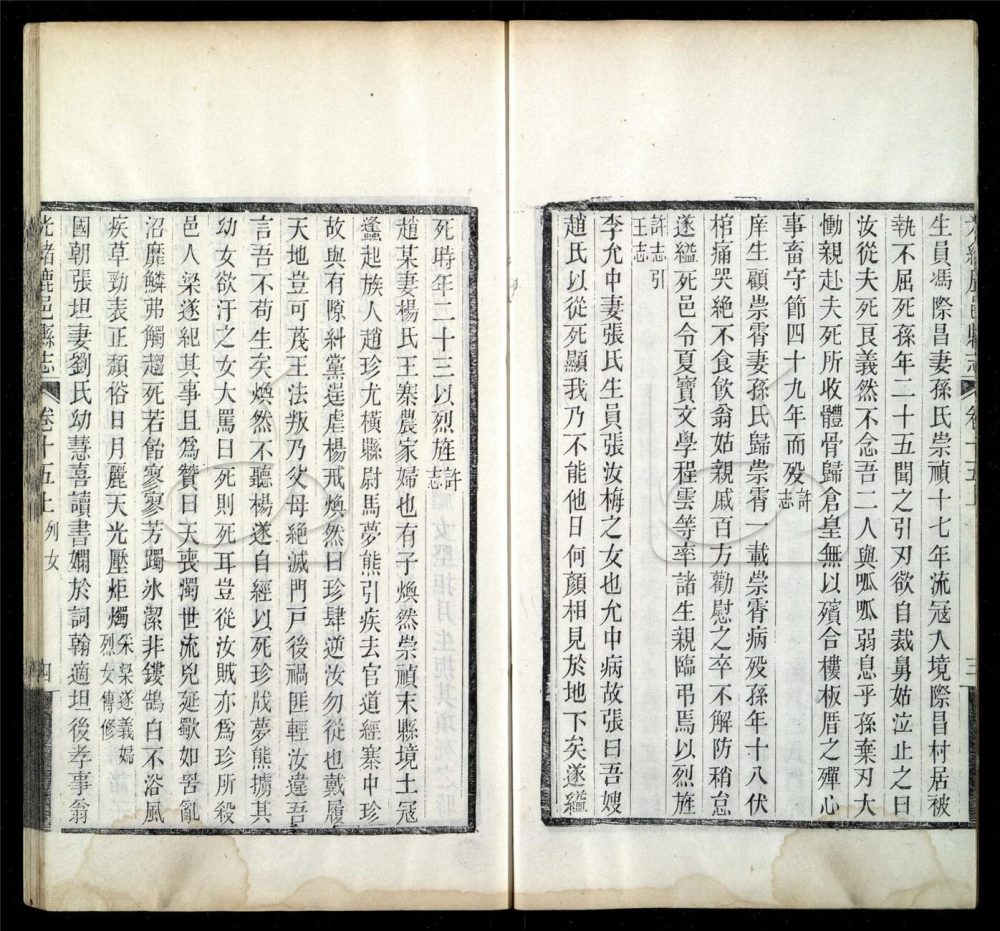 光緒鹿邑縣志 卷十五上 三
生員馮際昌妻孫氏崇禎十七年流寇入境際昌村居被
執不屈死孫年二十五聞之引刃欲自裁舅姑泣止之曰
汝從夫死艮義然不念吾二人與呱呱弱息乎孫棄刃大
慟親赴夫死所收體骨歸倉皇無以殯合樓板厝之殫心
事畜守節四十九年而殁許志
庠生顧崇霄妻孫氏歸崇霄一載崇霄病殁孫年十八伏
棺痛哭絕不食飲翁姑親戚百方勸慰之卒不解防稍怠
遂縊死邑令夏寶文學程雲等率諸生親臨弔焉以烈旌
許志引王志
李允中妻張氏生員張汝梅之女也允中病故張曰吾嫂
趙氏以從死顯我乃不能他日何顏相見於地下矣遂縊
死時年二十三以烈旌許志
趙某妻楊氏王寨農家婦也有子煥然崇禎末縣境土寇
蠭起族人趙珍尤橫縣尉馬夢熊引疾去官道經寨中珍
故與有隙糾黨逞虐楊戒煥然曰珍肆逆汝勿從也戴履
天地豈可蔑王法叛乃父母絕滅門戸後禍匪輕汝違吾
言吾不苟生矣煥然不聽楊遂自經以死珍戕夢熊擄其
幼女欲汙之女大罵曰死則死耳豈從汝賊亦爲珍所殺
邑人梁遂紀其事且爲贊曰天喪濁世流兇延歠如罟亂
沼靡鱗弗觸趨死若飴寥寥芳躅氷潔非鏤鵠白不浴風
疾草勁表正頹俗日月麗天光壓炬燭采梁遂義婦烈女傳修
國朝張坦妻劉氏幼慧喜讀書嫻於詞翰適坦後孝事翁
光緒鹿邑縣志 卷十五上 列女 四